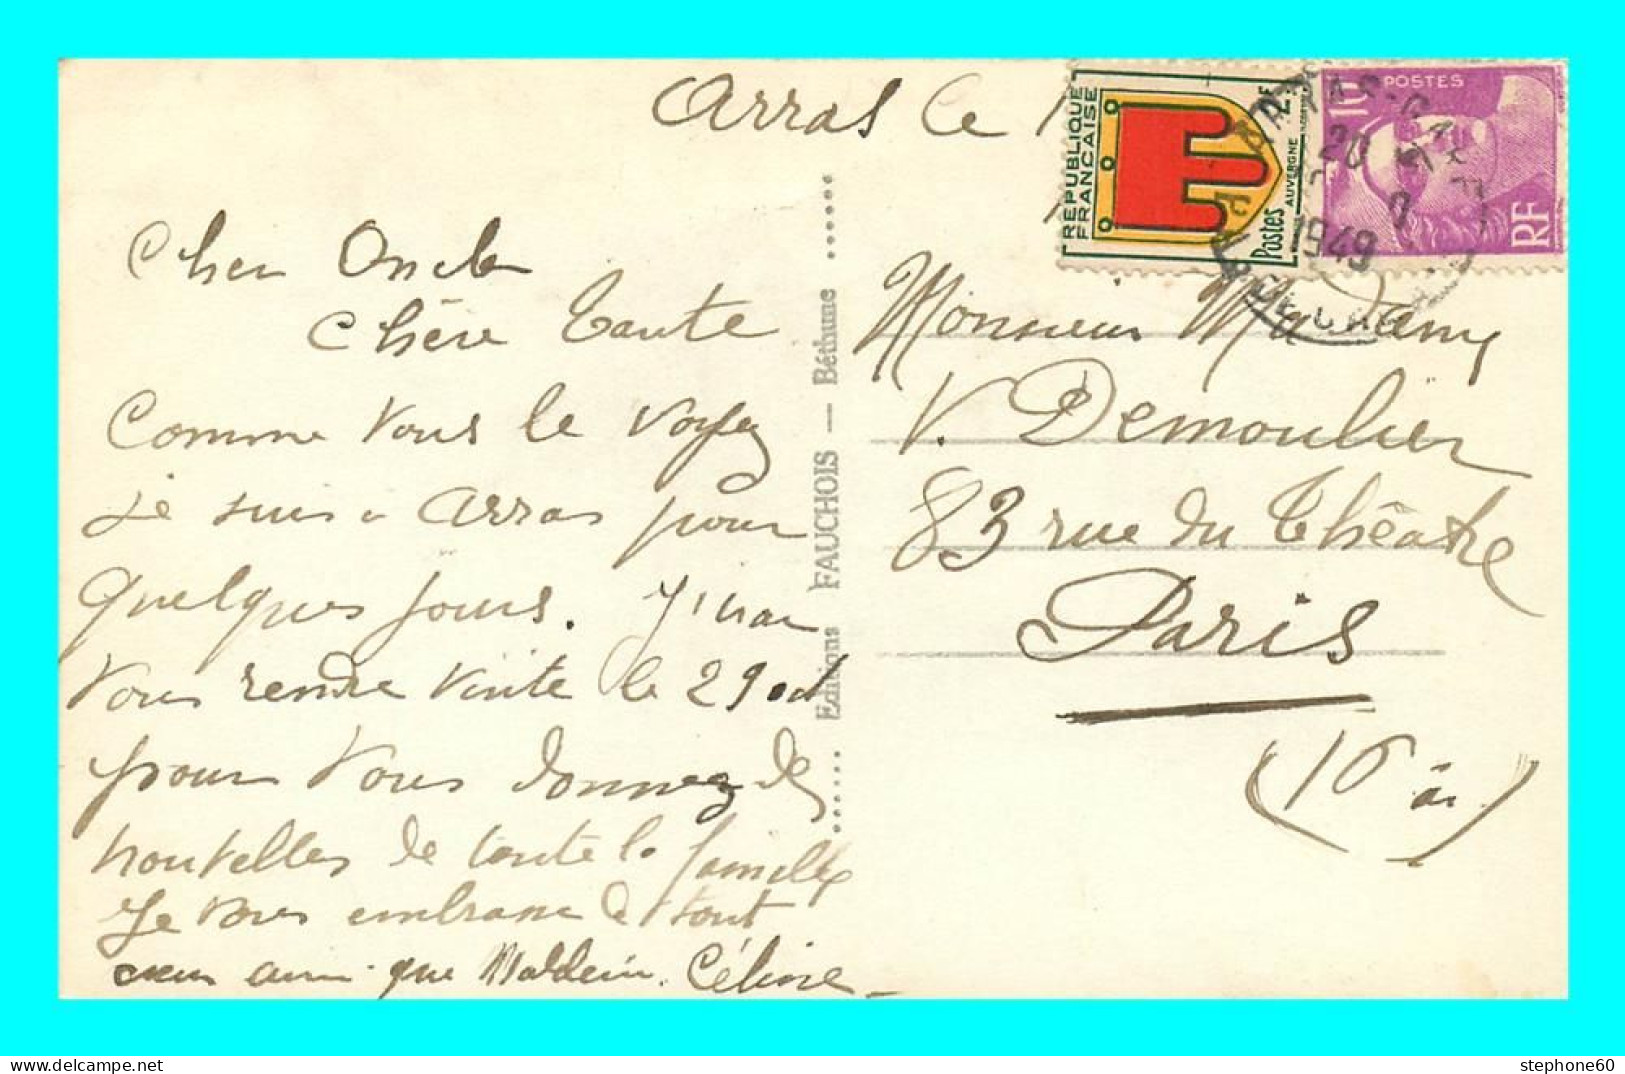 Arras le 1
Cher Oncle
Chère Tante
Comme vous le voyez
Je suis a Arras pour
quelques jours. J'irai
vous rendre visite le 29 oct
pour vous donnez de
nouvelles de toute la famille
Je vous embrasse de tout
que Céline
Editions FAUCHOIS — Béthune
REPUBLIQUE
FRANCAISE
2F
AUVERGNE
Postes
10
POSTES
RF
20
1949
Monsieur Madame
V. Demoulier
83 rue du Théâtre
Paris
stephone60